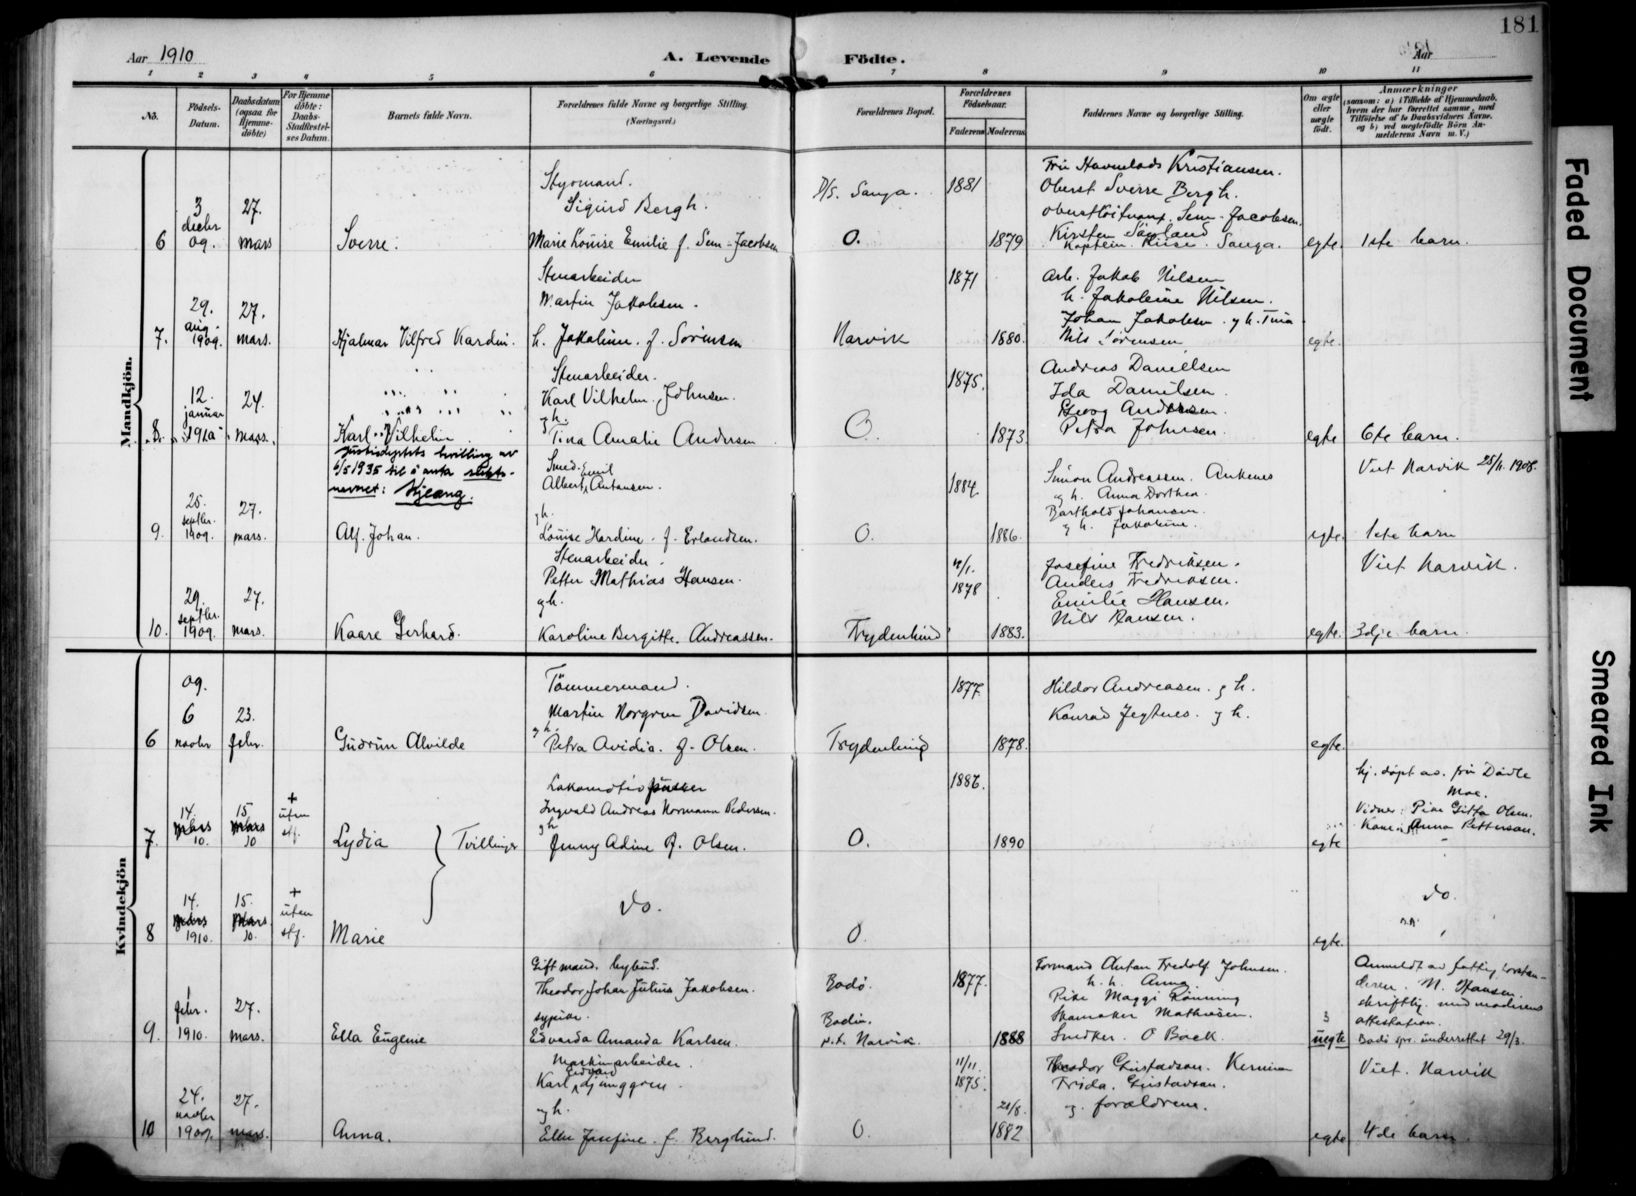 181
Aar 1910
A. Levende Fødte.
Aar
1 2 3 4 5 6 7. 8 9 10 11
No.
Fødsels-Datum.
Daabsdatum (ogsaa for Hjemme-døbte)
For Hjemme døbte: Daabs-Stadfæstel-ses Datum.
Barnets fulde Navn.
Forældrenes fulde Navne og borgerlige Stilling. (Næringsvei.)
Forældrenes Bopæl.
Forældrenes Fødselsaar.
Faderens Moderens
Faddernes Navne og borgerlige Stilling.
Om ægte eller uægte født.
Anmærkninger
(saasom: a) i Tilfælde af Hjemmedaab, hvem der har forrettet samme, med Tilføielse af to Daabsvidners Navne, og b) ved uægtefødte Børn An-melderens Navn m. V.)
Mandkjøn.
6
3 decbr 09.
27. mars
Sverre.
Styrmand.
Sigurd Bergh.
Marie Louise Emilie f. Sem-Jacobsen
D/S. Sanga.
O.
1881
1879
Fru Kristiansen.
Oberst Sverre Bergh.
Sem-Jacobsen.
Kirsten
Kaptein Sanga.
egte.
1ste barn.
7.
29. aug. 1909.
27. mars.
Hjalmar Vilfred Kardin.
Stenarbeider
Martin Jakobsen.
h. Jakobine. f. Sørensen
Narvik
1871
1880.
Arb. Jakob Nilsen
h. Jakobine Nilsen.
Johan Jakobsen. g h. Tina
Nils Sørensen
egte.
8
12. januar 1910
24. mars.
Karl Vilhelm
hvilling av
6/5 1935 til å anta slegts-
navnet: Kjelang.
Stenarbeider.
Karl Vilhelm Johnsen.
g h.
Tina Amalie Andersen
O.
1875.
1873
Andreas Danielsen
Ida Danielsen.
Georg Andersen.
Petra Johnsen.
egte
6te barn.
9.
25. septbr. 1909.
27. mars.
Alf. Johan.
Smed.
Albert Emil Antonsen.
g h.
Louise Hardine. f. Erlandsen.
O.
1884
1886.
Simon Andreassen. Ankenes
og h. Anna Dorthea.
Barthold Johansen
og h. Jakobine.
egte.
Viet Narvik 25/11. 1908.
1ste barn
10.
29. septbr. 1909.
27. mars.
Kaare Gerhard.
Stenarbeider.
Petter Mathias Hansen.
gh.
Karoline Bergitte. Andreassen.
Frydenlund
1878
1883.
Josefine Fredriksen.
Anders Fredriksen.
Emilie Hansen.
Nils Hansen.
egte.
Viet Narvik.
3dje barn.
Kvindekjøn
6
09. 6 novbr
23. febr.
Gudrun Alvilde
Tømmermand.
Martin Norgren Davidsen.
g h.
Petra Ovidia. f. Olsen.
Frydenlund
1877.
1878.
Hildor Andreasen. g h.
Konrad Jegtnes. g h.
egte.
7.
14. mars 10.
15. mars 10
+ uten stf.
Lydia
Tvillinger
Lokomotivpusser
Ingvald Andreas Normann Pedersen.
gh
Jenny Adine f. Olsen.
O.
1886.
1890
egte
hj. døpt av. fru Dødle
Moe.
Vidner: Pike Gitta Olsen.
Kone Anna Pettersen.
8
14. mars 1910.
15. Mars 10.
+ uten stf.
Marie
do.
O.
egte.
do.
9.
1 febr. 1910.
27. mars.
Ella Eugenie
Gift mand.
Theodor Johan Julius Jakobsen.
sypike.
Edvarda Amanda Karlsen.
Bodø.
Bodin.
p.t. Narvik.
1877.
1888
Formand Anton Fredolf Johnsen.
h. h. Anna
Pike Maggi Rønning
Skomaker Mathisen.
Snedker. O Back.
3
uegte
Anmeldt av fattigforstan-
deren. N. Hansen
skriftlig. med moderens
attestation.
Bodø spr. underrettet 29/3.
10
24. novbr 1909.
27. mars.
Anna.
Maskinarbeider.
Karl Edvard Ljunggren.
og h.
Ellen Josefine. f. Berglund.
O.
11/11. 1875.
21/8. 1882
Theodor Gustavson. Kiruna
Frida. Gustavson.
og. forældrene.
egte
Viet. Narvik
4de barn.
Faded Document
Smeared Ink